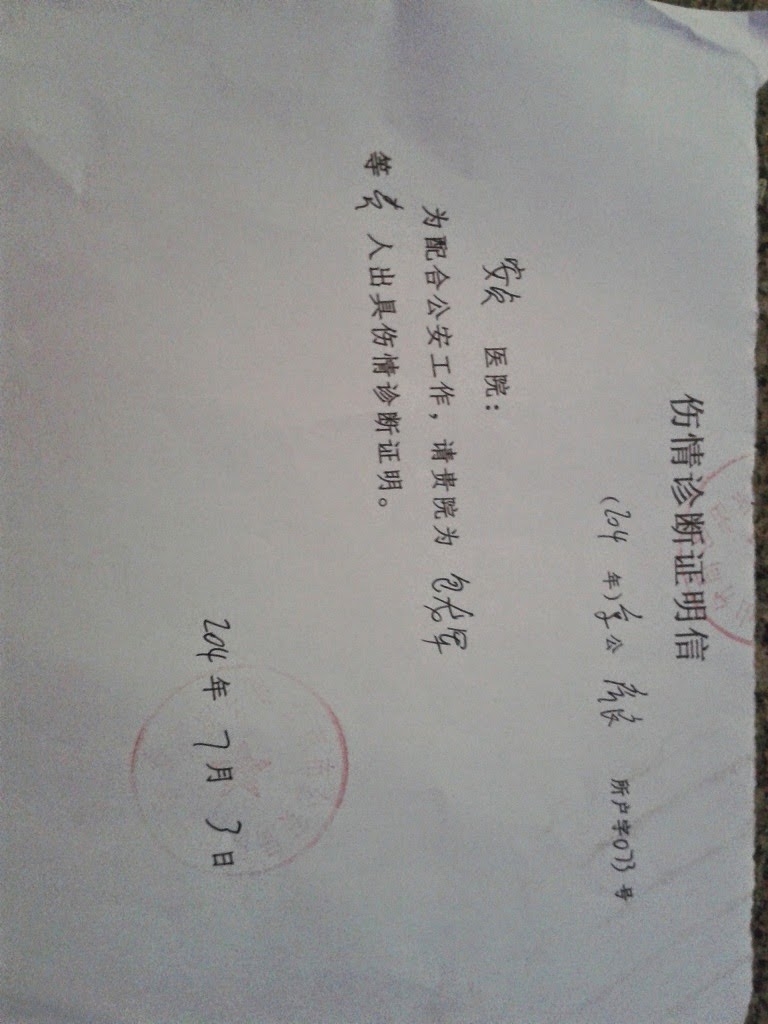 伤情诊断证明信
(204 年) 公 所户字073 号
安贞 医院:
为配合公安工作,请贵院为 包龙军
等 人出具伤情诊断证明。
204 年 7 月 3 日